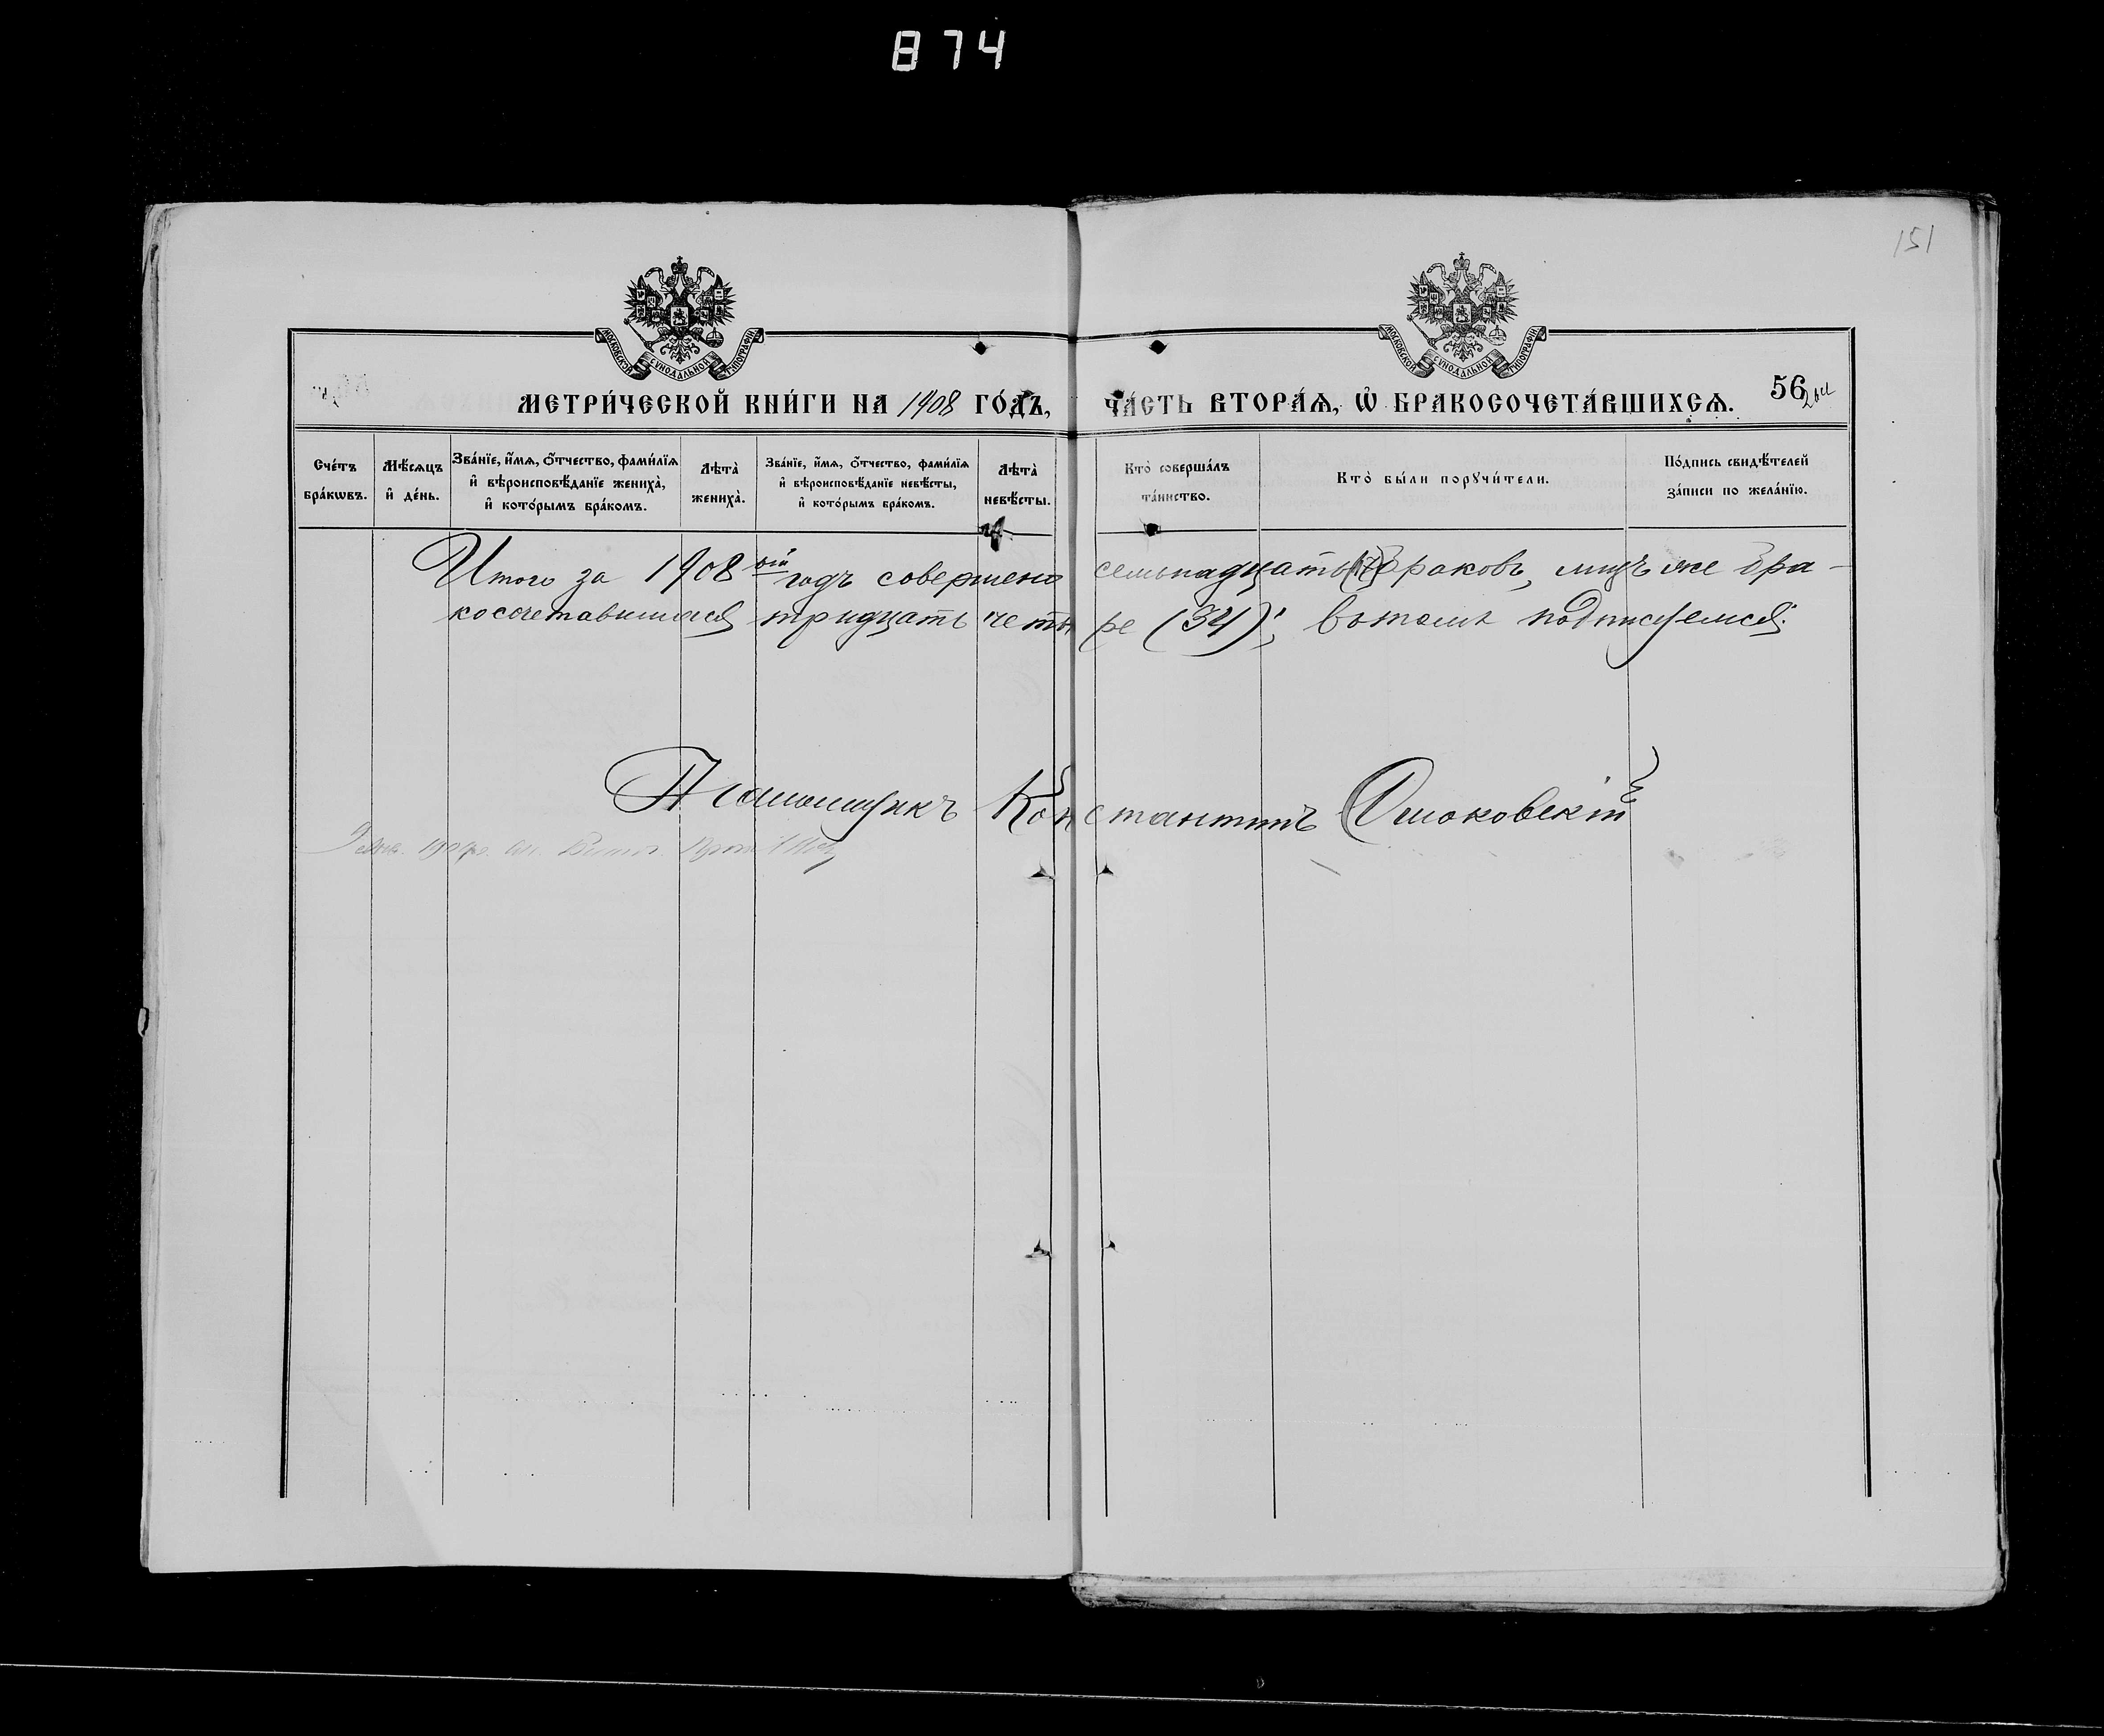 874
151
МОСКОВСКОЙ СѴНОДАЛЬНОЙ ТИПОГРАФІИ
МОСКОВСКОЙ СѴНОДАЛЬНОЙ ТИПОГРАФІИ
МЕТРИ́ЧЕСКОЙ КНИ́ГИ НА 1908 ГО́ДЪ,
ЧА́СТЬ ВТОРА́Ѧ, Ѽ БРАКОСОЧЕТА́ВШИХСѦ.
56
Сче́тъ бра́кѡвъ.
Мѣ́сѧцъ и҆ де́нь.
Зва́нїе, и҆́мѧ, ѻ҆́тчество, фами́лїѧ и҆ вѣроисповѣ́данїе жениха̀, и҆ кото́рымъ бра́комъ.
Лѣта̀ жениха̀.
Зва́нїе, и҆́мѧ, ѻ҆́тчество, фами́лїѧ и҆ вѣроисповѣ́данїе невѣ́сты, и҆ кото́рымъ бра́комъ.
Лѣта̀ невѣ́сты.
Кто̀ соверша́лъ та́инство.
Кто̀ бы́ли порꙋчи́тели.
По́дпись свидѣ́телей за́писи по жела́нїю.
Итого за 1908 ой годъ совершено семьнадцать (17) браковъ, лицъ же бра-
косочетавшихся тридцать четыре (34); въ томъ подписуемся:
Константинъ